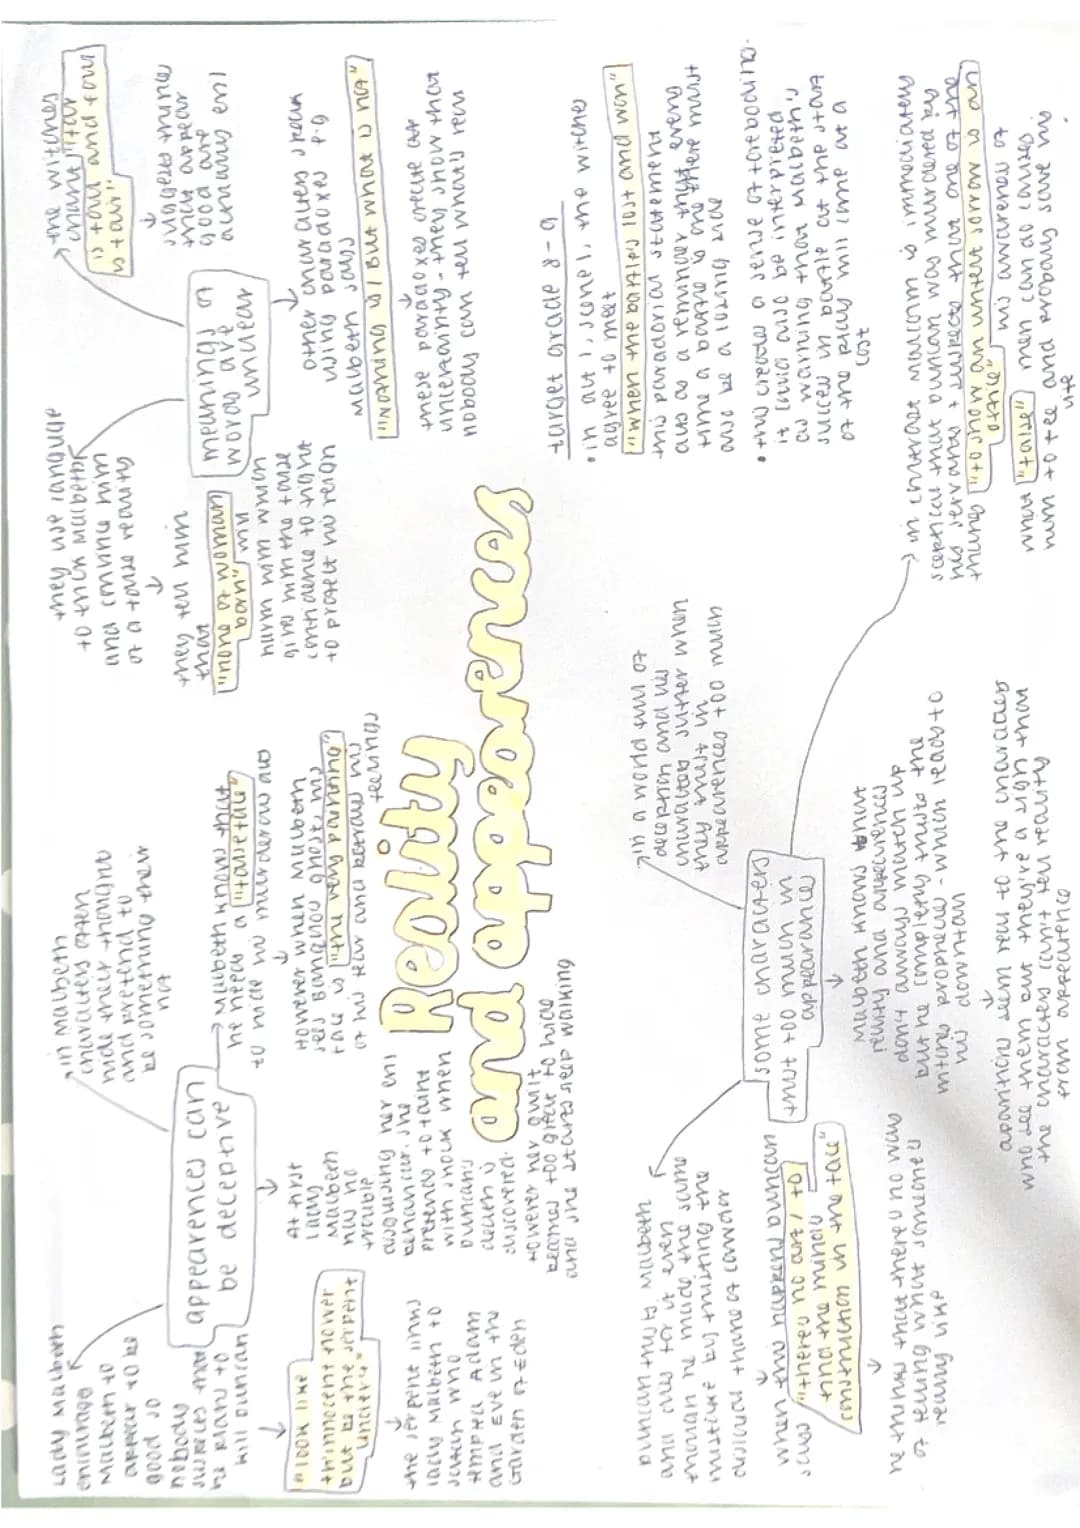 Reality
and appearences
appearences can
be deceptive
in macbeth
characters often
hide their thoughts
and pretend to
be something their
not
Lady Macbeth
encourages
Macbeth to
appear to be
good so
nobody
suspects that
he plans to
kill Duncan
"look like
th'innocent flower
but be the serpent
under it"
the serpent links
lady Macbeth to
satan who
tempted Adam
and Eve in the
Garden of Eden
At first
lady
Macbeth
has no
trouble
disguising her evil
behaviour. she
pretends to faint
with shock when
Duncan's
death is
discovered.
However her guilt
becomes too great to hide
and she starts sleep walking
Macbeth knows that
he needs a "false face"
to hide his murderous acts
However when Macbeth
sees Banquo's ghost, his
face is "the very painting"
of his fear and betrays his
feelings
meanings of
words are
unclear
the witches
chant "fair
is foul and foul
is fair"
suggests things
that appear
good are
actually evil
they use language
to trick Macbeth
and convince him
of a false reality
they tell him
that
"none of woman
born" will
harm him which
gives him the false
confidence to fight
to protect his reign
other characters speak
using paradoxes e.g
Macbeth says
"Nothing is / But what is not"
these paradoxes create an
uncertainty - they show that
nobody can tell what's real
target grade 8-9
• in act 1, scene 1, the witches
agree to meet
"when the battle's lost and won"
this paradoxical statement
acts as a reminder that every
time a battle is one there must
also be a losing side
• this creates a sense of foreboding.
it could also be interpreted
as warning that Macbeth's
success in battle at the start
of the play will come at a
cost
some characters
trust too much in
appearance
in a world full of
deception and lies
characters suffer when
they trust in
appearences too much
Duncan trusts Macbeth
and dies for it even
though he made the same
mistake by trusting the
disloyal thane of cawdor
when this happens Duncan
says "there's no art / to
find the mind's
construction in the face"
he thinks that there's no way
of telling what someone's
really like
Macbeth knows that
reality and appearences
don't always match up
but he completely trusts the
witches prophecies - which leads to
his downfall
aparitions seem real to the characters
who see them but they're a sign that
the characters can't tell reality
from appearence
in contrast Malcolm is immediately
sceptical that Duncan was murdered by
his servants + suspects that one of the
thanes "to show an unfelt sorrow is an
office" his awareness of
what "false" men can do causes
him to flee and probably save his
life